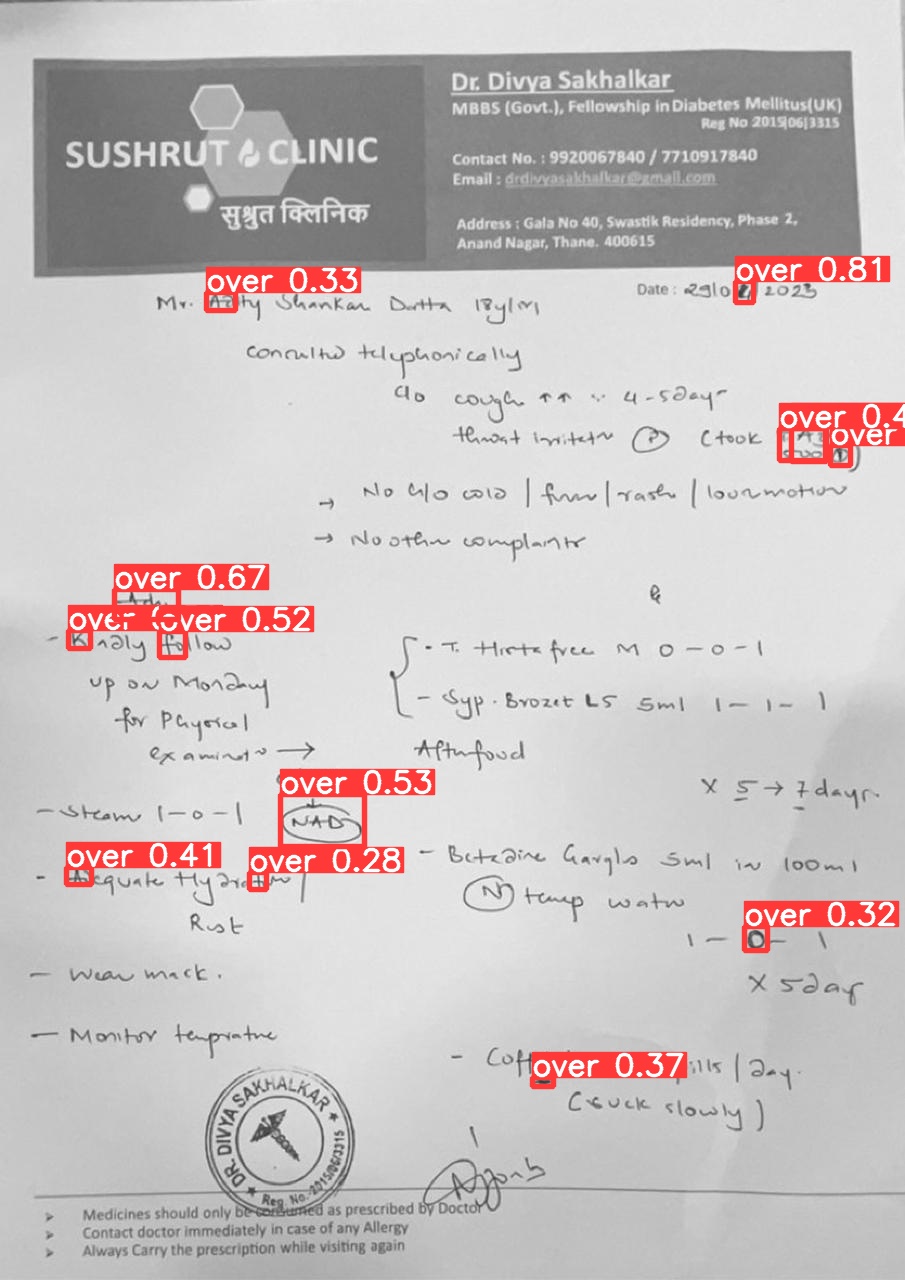 Dr. Divya Sakhalkar
MBBS (Govt.), Fellowship in Diabetes Mellitus(UK)
Reg No 2015|06|3315
SUSHRUT CLINIC
सुश्रुत क्लिनिक
Contact No. : 9920067840 / 7710917840
Email : drdivyasakhalkar@gmail.com
Address : Gala No 40, Swastik Residency, Phase 2,
Anand Nagar, Thane. 400615
over 0.33
over 0.81
Date : 29/0 /2023
Mr. Shankar Dutta 18y/M
Consulted telephonically
c/o cough ↑↑ 4-5 days
over 0.4
over
throat irritatn (P) (took
→ No c/o cold / fever / rash / loosemotion
→ No other complaints
over 0.67
over
over 0.52
- Kindly follow
up on Monday
for Physical
examinatn →
NAD
over 0.53
T. Histafree M 0-0-1
- Syp. Brozet LS 5ml 1-1-1
After food
X 5 → 7 days.
- Steam 1-0-1
over 0.41
over 0.28
- Adequate Hydration /
Rest
- Betadine Gargles 5ml in 100ml
(N) temp water
over 0.32
1-0-1
X 5 day
- Wear mask.
- Monitor temprature
over 0.37
- pills / day.
(suck slowly)
DR. DIVYA SAKHALKAR
Reg. No.-2015/06/3315
Medicines should only be consumed as prescribed by Doctor
Contact doctor immediately in case of any Allergy
Always Carry the prescription while visiting again